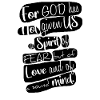 For GOD has
given US
Spirit of
FEAR but of
Love and of
mind